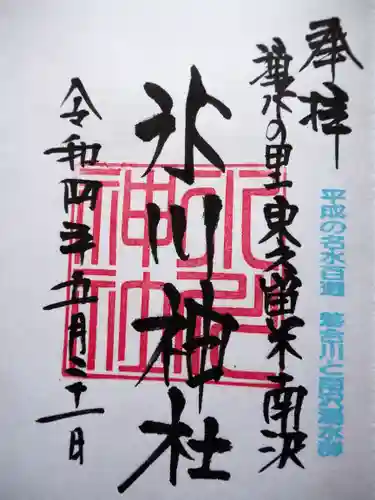 奉拝
平成の名水百選 落合川と南沢湧水群
湧水の里 東久留米南沢
氷川神社
令和四年五月二十一日
氷川神社